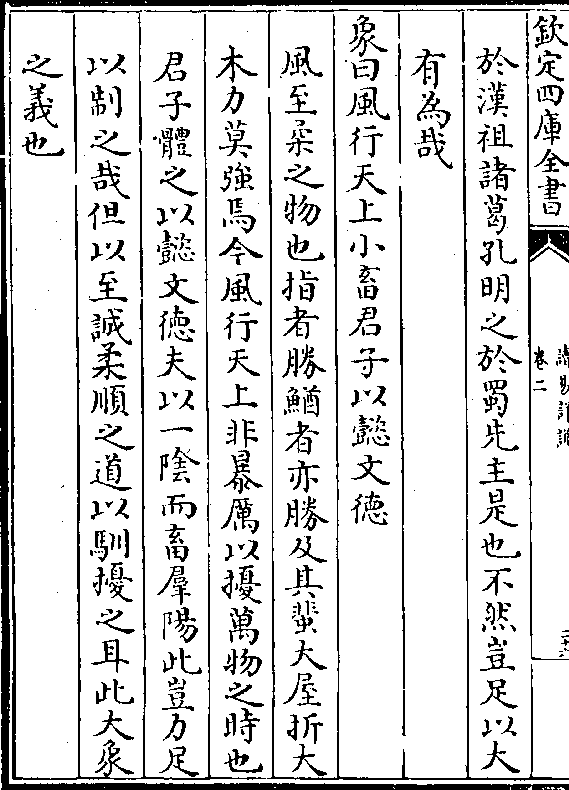 欽定四庫全書
卷二
於漢祖諸葛孔明之於蜀先主是也不然豈足以大
有為哉
象曰風行天上小畜君子以懿文德
風至柔之物也指者勝鰌者亦勝及其蜚大屋折大
木力莫強焉今風行天上非暴厲以擾萬物之時也
君子體之以懿文德夫以一陰而畜羣陽此豈力足
以制之哉但以至誠柔順之道以馴擾之耳此大象
之義也